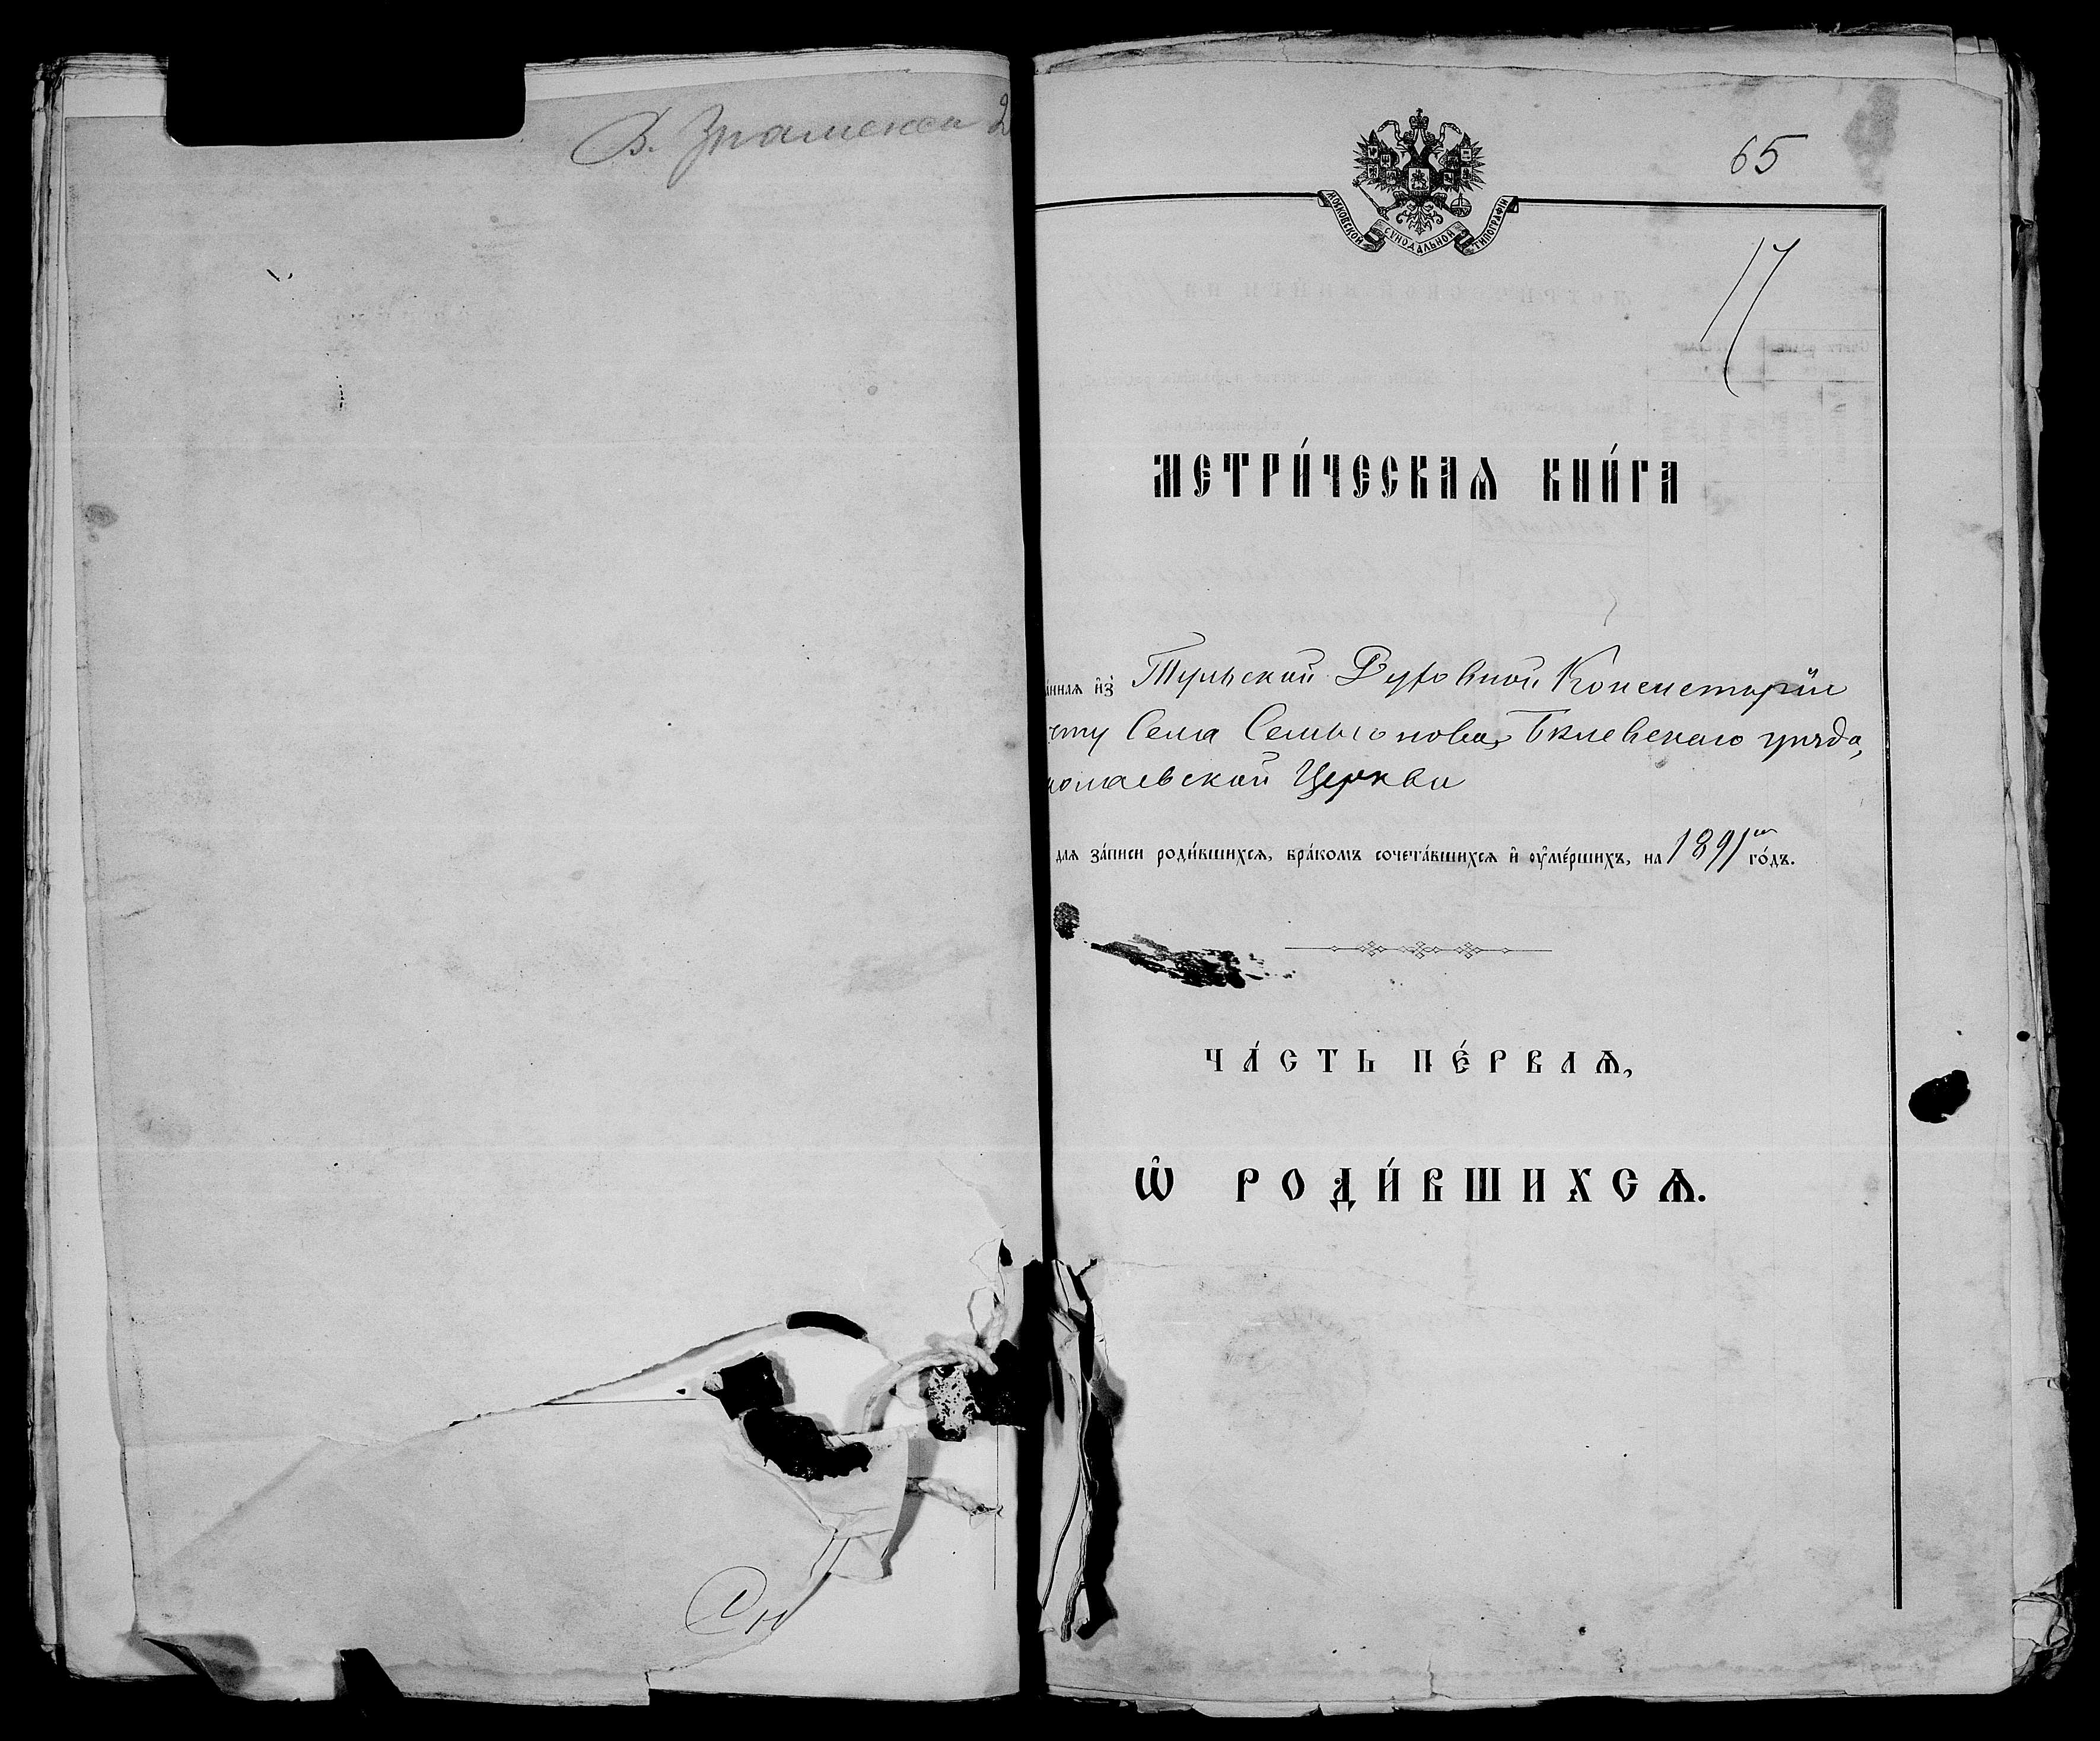 В. Знаменско 2
65
МОСКОВСКОЙ СѴНОДАЛЬНОЙ ТИПОГРАФІИ
17
МЕТРИ́ЧЕСКАѦ КНИ́ГА
а́ннаѧ и҆з̾ Тульской Духовной Консисторіи
чту Села Семьюнова, Бѣлевскаго уѣзда,
колаевской Церкви
длѧ за́писи роди́вшихсѧ, бра́комъ сочета́вшихсѧ и҆ ᲂу҆ме́ршихъ, на 1891й го́дъ.
ЧА́СТЬ ПЕ́РВАѦ,
Ѡ҆ РОДИ́ВШИХСѦ.